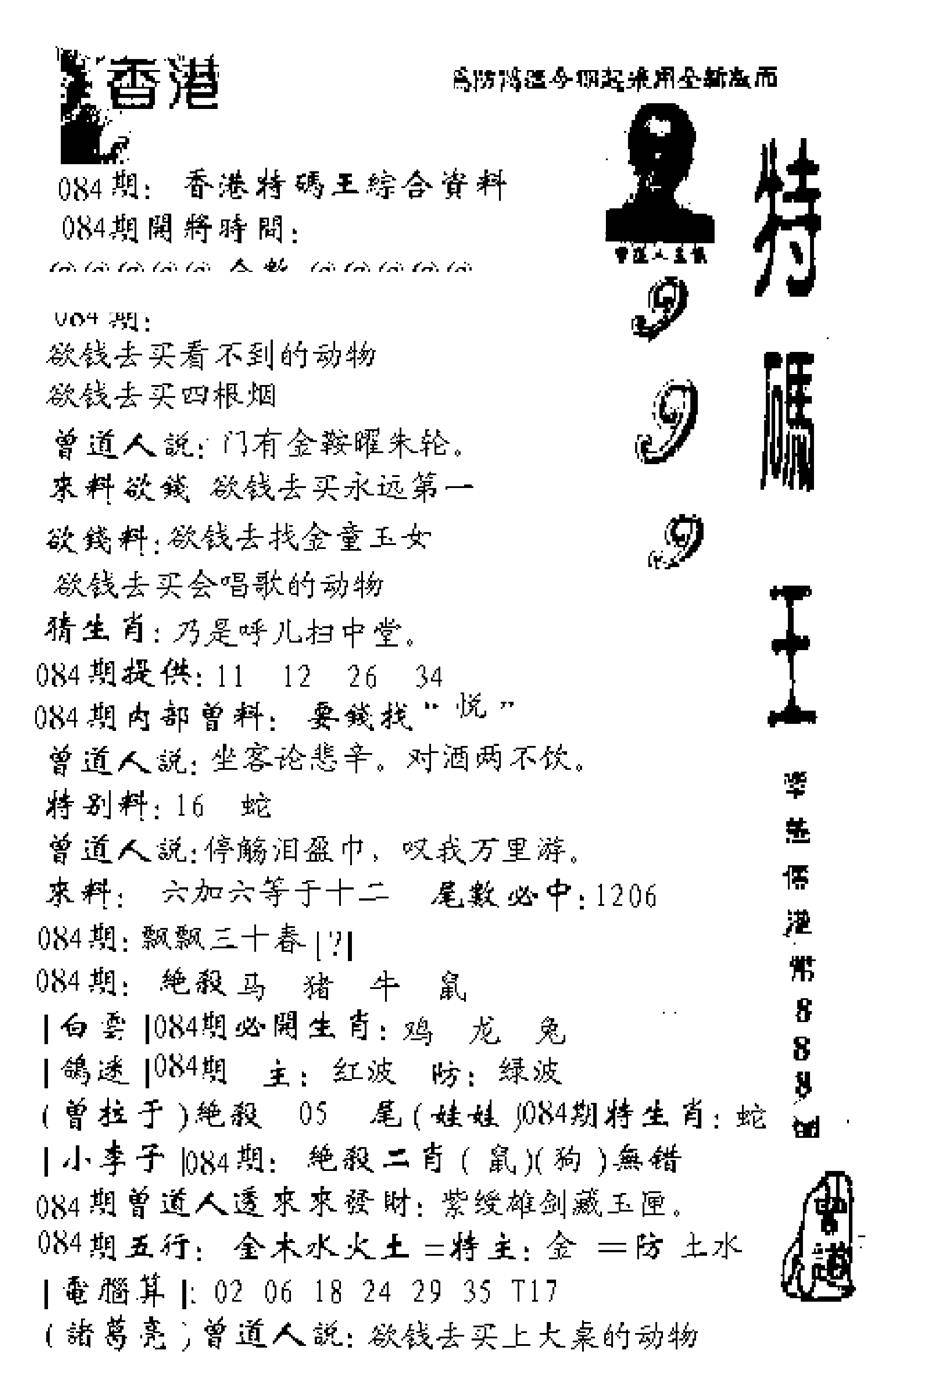 香港
084期: 香港特碼王綜合資料
084期開將時間:
084期:
欲钱去买看不到的动物
欲钱去买四根烟
曾道人説: 门有金鞍曜朱轮。
來料欲錢 欲钱去买永远第一
欲錢料: 欲钱去找金童玉女
欲钱去买会唱歌的动物
猜生肖: 乃是呼儿扫中堂。
084期提供: 11 12 26 34
084期内部曾料: 要錢找“悦”
曾道人説: 坐客论悲辛。对酒两不饮。
特别料: 16 蛇
曾道人説: 停觞泪盈巾, 叹我万里游。
來料: 六加六等于十二 尾數必中: 1206
084期: 飘飘三十春[?]
084期: 絶殺 马 猪 牛 鼠
|白雲|084期必開生肖: 鸡 龙 兔
|鴿迷|084期 主: 红波 防: 绿波
(曾拉于)絶殺 05 尾(娃娃)084期特生肖: 蛇
|小李子|084期: 絶殺二肖(鼠)(狗)無错
084期曾道人透來來發財: 紫绶雄剑藏玉匣。
084期五行: 金木水火土=特主: 金 =防 土水
|電腦算|: 02 06 18 24 29 35 T17
(諸葛亮)曾道人説: 欲钱去买上大桌的动物
9
9
9
特
碼
王
港
幣
8
8
8
曾道